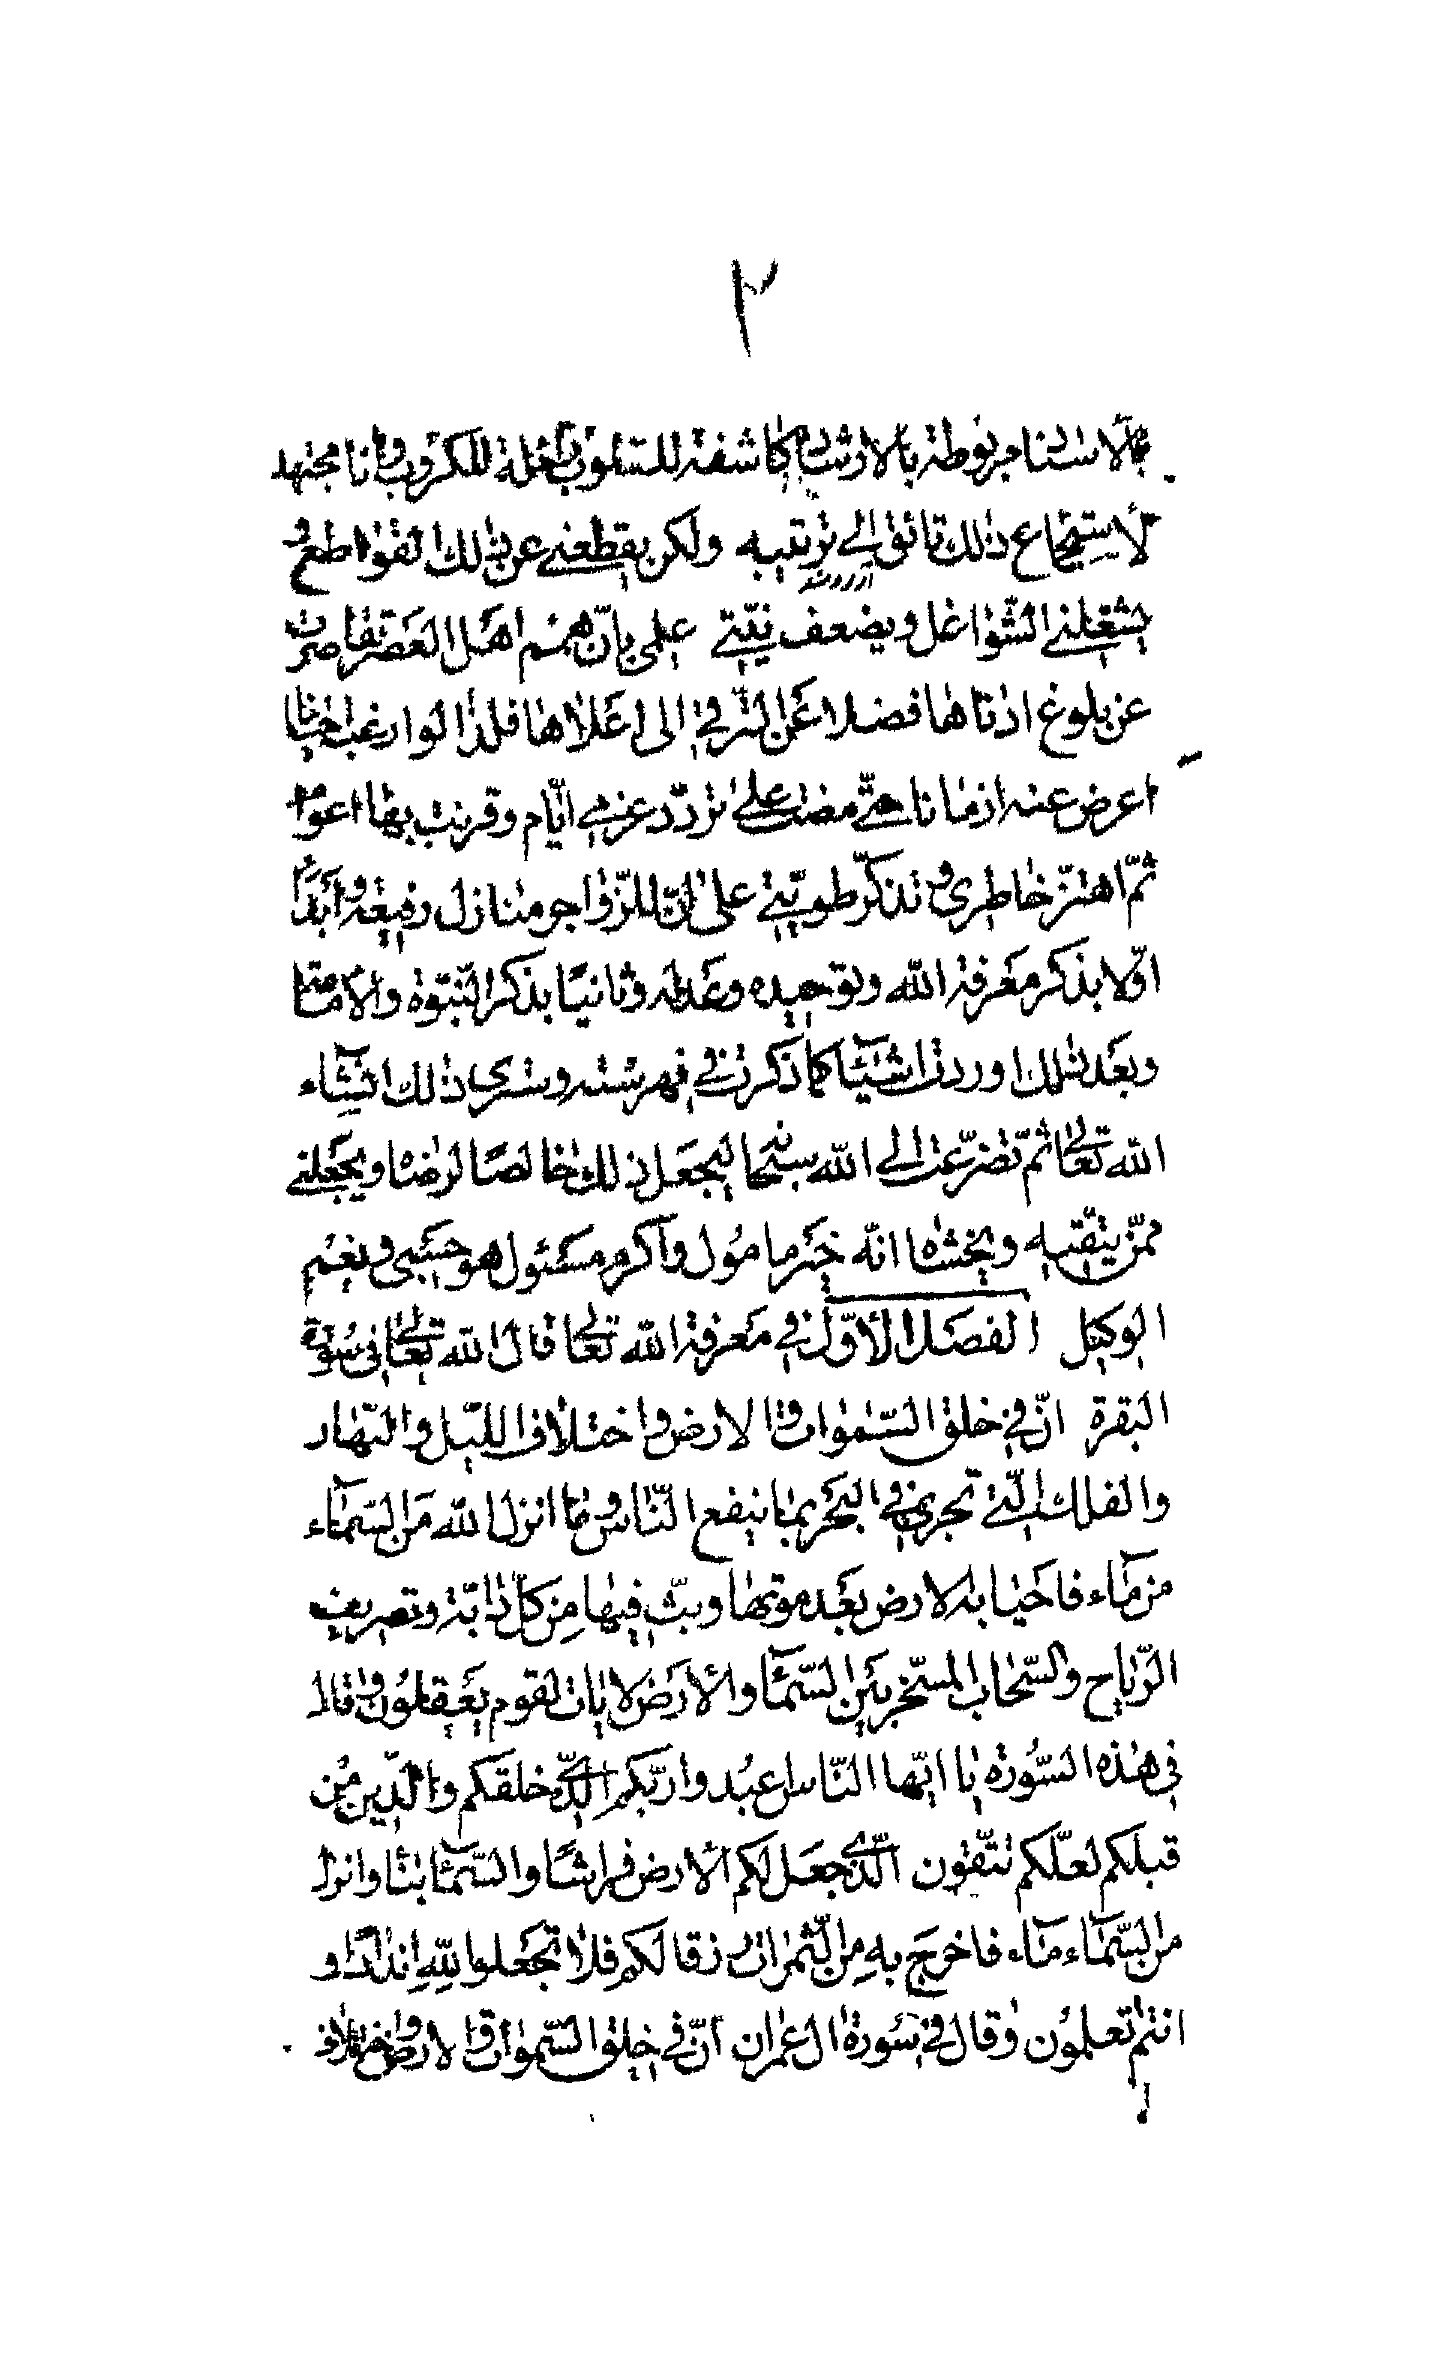 ٢
بالاسناد مربوطة بالارشاد كاشفة للقلوب غلة للكروب وانا مجتهد
لاستجماع ذلك تائق الى ترتيبه ولكن يقطعنى عن ذلك القواطع و
يشغلنى الشواغل ويضعف نيّتى علمى بانّ همم اهل العصر تقاصرت
عن بلوغ ادناها فضلا عن الترقى الى اعلاها فلذا لوا رغب احيانا
اعرض عنه ازمانا حتّى مضت على تردّد عزمى ايّام وقرنت بها اعوام
ثمّ اهتزّ خاطرى وتذكّر طويّتى على انّ للزّواجر منازل رفيعة وأبدأ
اوّلا بذكر معرفة الله وتوحيده وعدله وثانيًا بذكر النبّوة والأمامة
وبعد ذلك اوردت اشيآئا كما ذكرت في فهرسته وسترى ذلك انشآء
الله تعالى ثمّ تضرّعت الى الله سبحانه ليجعل ذلك خالصًا لرضاه ويجعلنى
ممّن يتّقيه ويخشاه انّه خير مامول وأكرم مسئول هو حسبى ونعم
الوكيل الفصل الأوّل في معرفة الله تعالى قال الله تعالى في سورة
البقرة انّ في خلق السّموات والارض واختلاف اللّيل والنّهار
والفلك الّتى تجرى في البحر بما ينفع النّاس وما انزل الله من السّمآء
من مآء فاحيا به الارض بعد موتها وبثّ فيها مِن كلّ دابّة وتصريف
الرّياح والسّحاب المسخّر بين السّمآء والأرض لايات لقوم يعقلون وقال
في هذه السّورة يا ايّها النّاس اعبُدوا ربّكم الّذى خلقكم والّذين مِن
قبلكم لعلّكم تتّقون الّذى جعل لكم الأرض فراشًا والسّمآء بنآء وانزل
من السّمآء مآء فاخرج بهِ مِن الثّمرات رزقا لكم فلا تجعلوا للهِ اندادًا و
انتم تعلمُون وقال في سورة ال عمران انّ في خلق السّموات والارض واختلاف